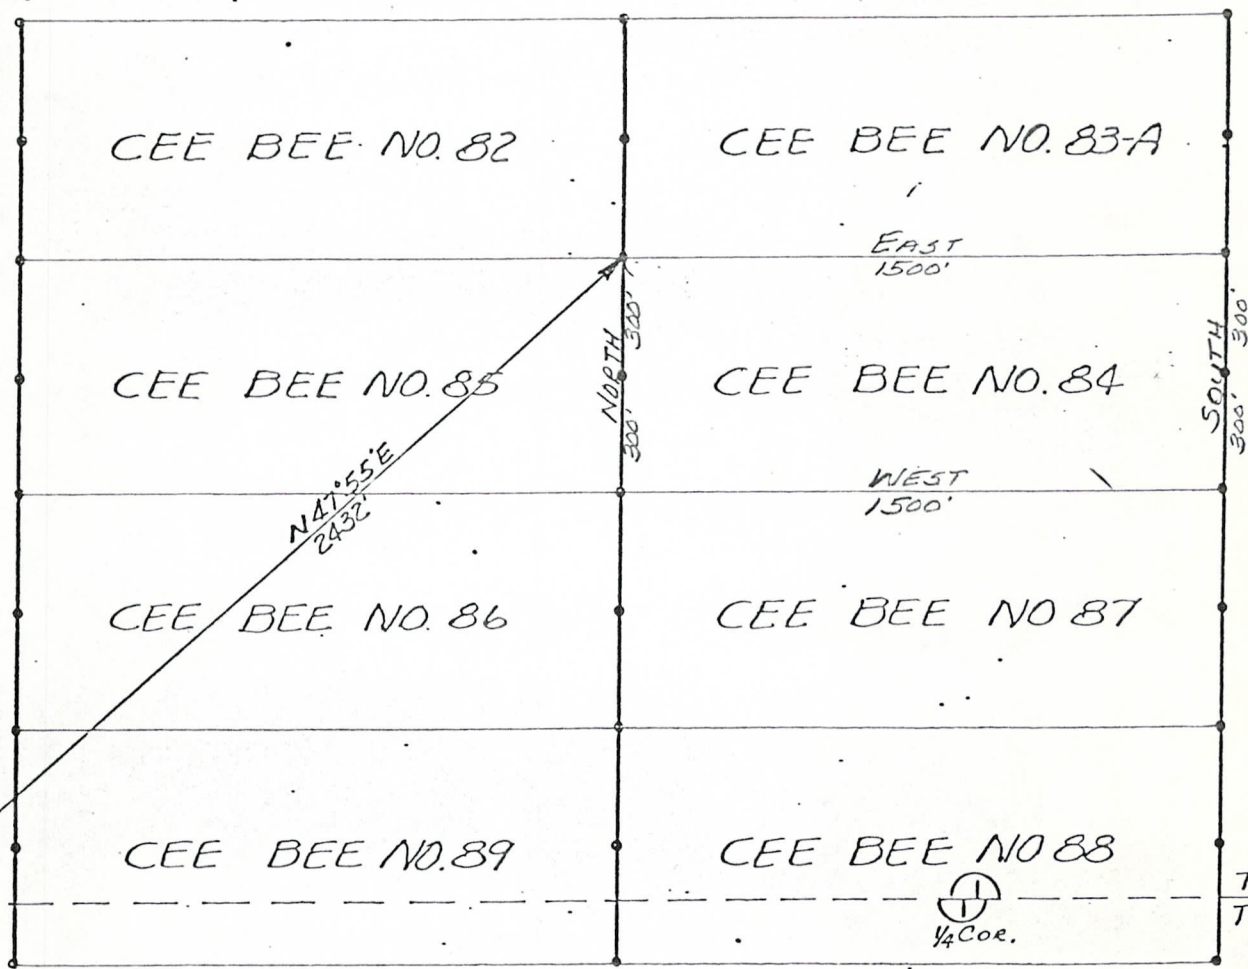 CEE BEE NO. 82
CEE BEE NO. 83-A
EAST
1500'
CEE BEE NO. 85
NORTH
300'
300'
CEE BEE NO. 84
SOUTH
300'
300'
N47°55'E
2432'
WEST
1500'
CEE BEE NO. 86
CEE BEE NO 87
CEE BEE NO. 89
CEE BEE NO 88
1/4 COR.
T
T